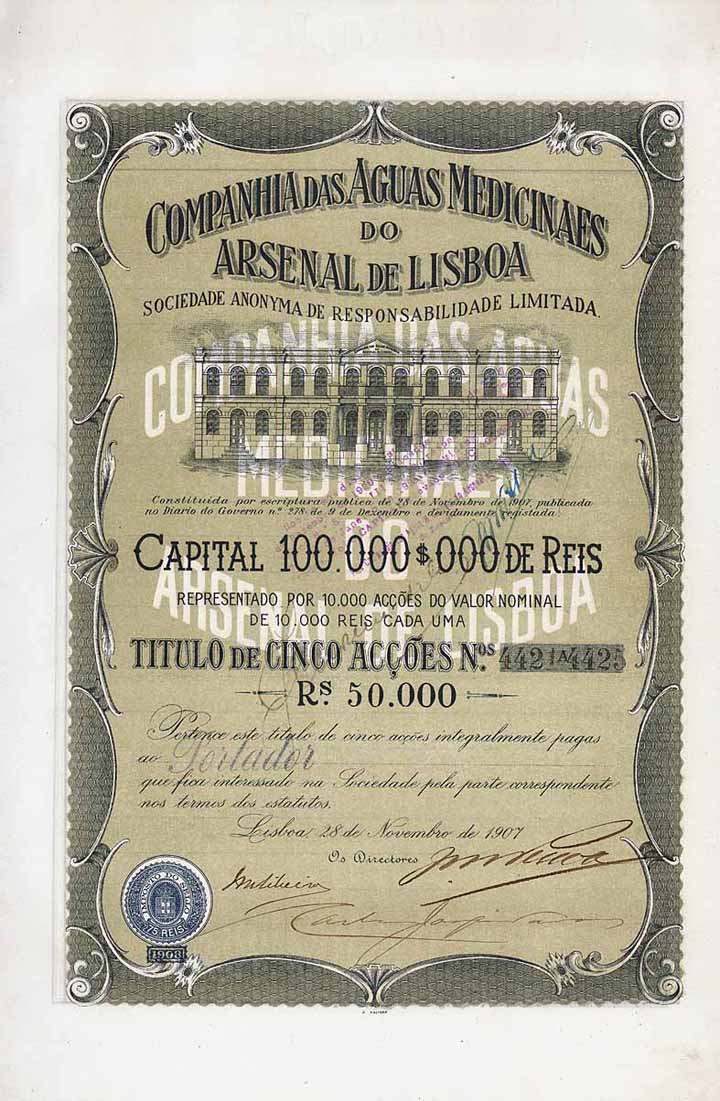 COMPANHIA DAS AGUAS MEDICINAES
DO
ARSENAL DE LISBOA
SOCIEDADE ANONYMA DE RESPONSABILIDADE LIMITADA.
COMPANHIA DAS AGUAS
MEDICINAES
DO
ARSENAL DE LISBOA
Constituida por escriptura publica de 28 de Novembro de 1907, publicada
no Diario do Governo nº 278 de 9 de Dezembro e devidamente registada.
CAPITAL 100.000$000 DE REIS
REPRESENTADO POR 10.000 ACÇÕES DO VALOR NOMINAL
DE 10.000 REIS CADA UMA
TITULO DE CINCO ACÇÕES N.ºs 4421 A 4425
Rs 50.000
Pertence este titulo de cinco acções integralmente pagas
ao Portador
que fica interessado na Sociedade pela parte correspondente
nos termos dos estatutos.
Lisboa, 28 de Novembro de 1907
Os Directores
IMPOSTO DO SELLO
75 REIS
1908